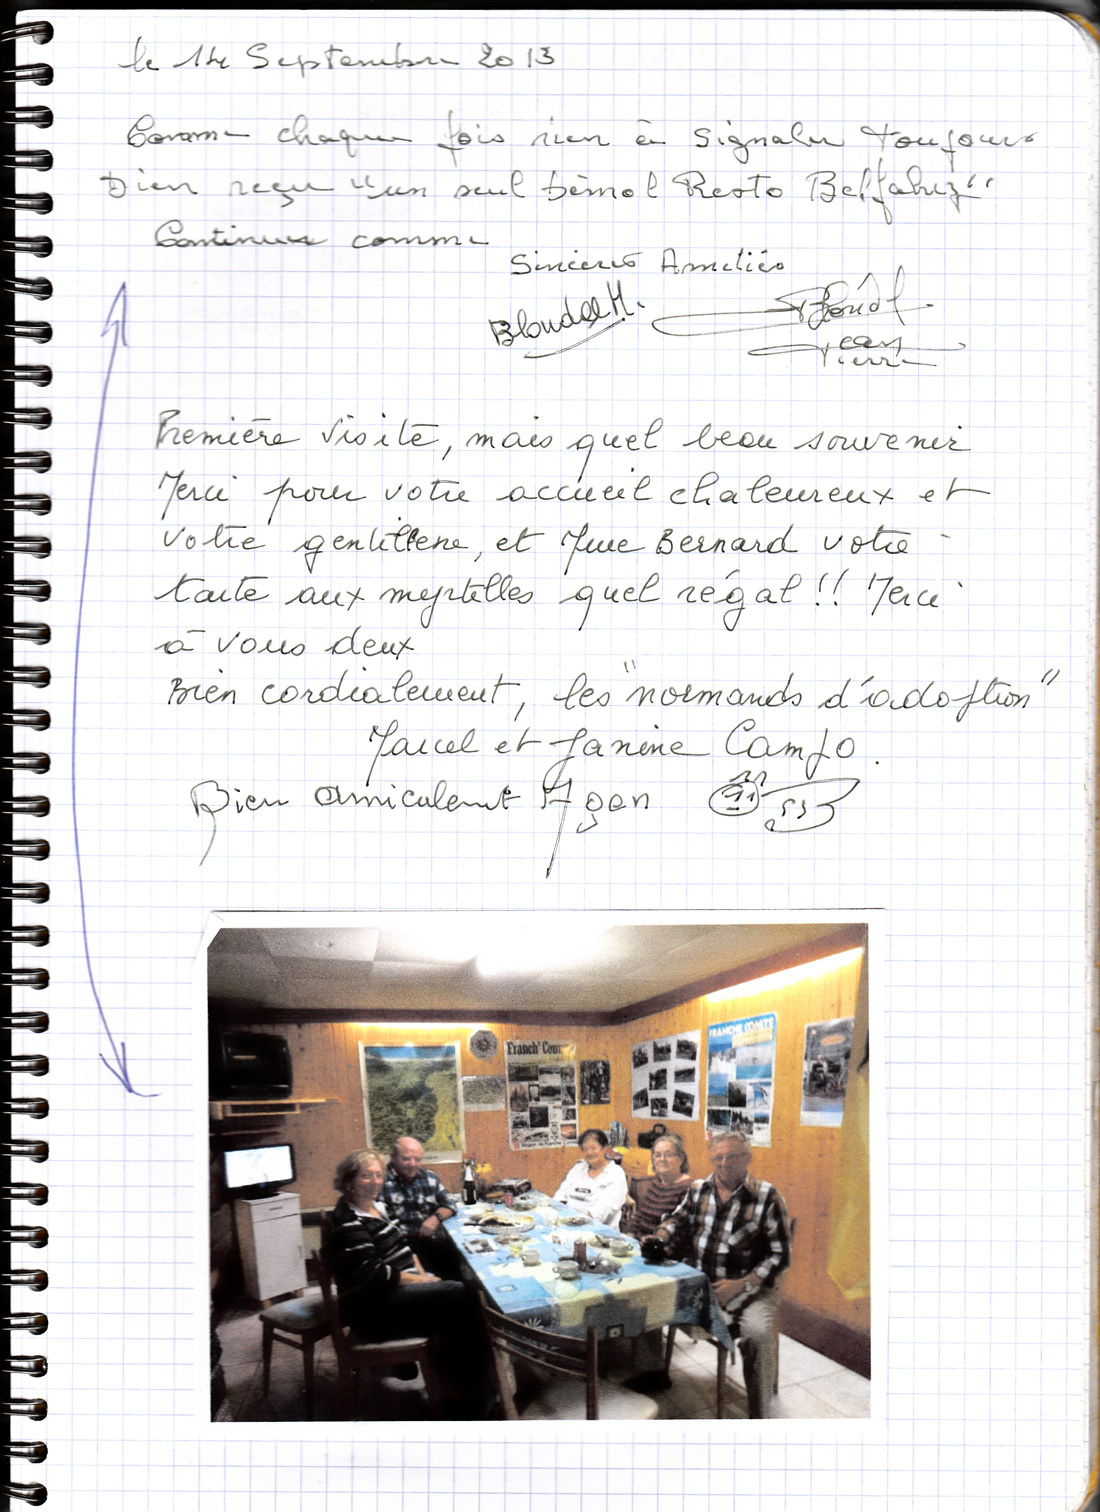 le 14 Septembre 2013
Comme chaque fois rien à signaler toujours
Bien reçu "un seul bémol Resto Belfahy"
Continuer comme
Sincères Amitiés
Blondel M.
Jean
Pierre
Première visite, mais quel beau souvenir
Merci pour votre accueil chaleureux et
votre gentillesse, et Mme Bernard votre
tarte aux myrtilles quel régal !! Merci
à vous deux
Bien cordialement, les "normands d'adoption"
Marcel et Janine
Bien amicalement
FRANCHE COMTÉ
Franch' Com